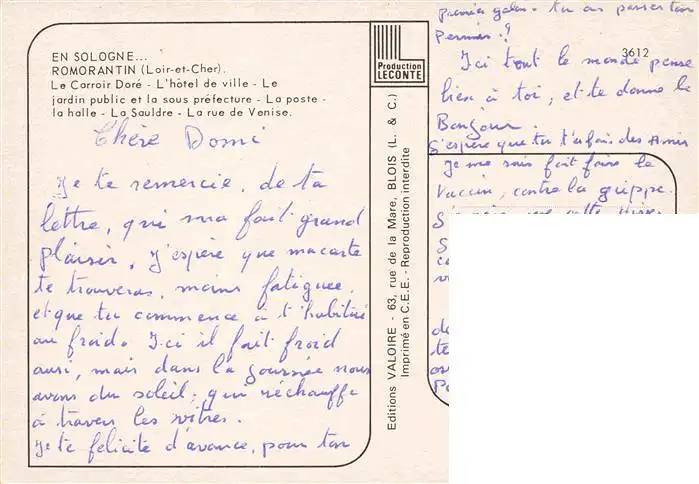 EN SOLOGNE...
ROMORANTIN (Loir-et-Cher).
Le Carroir Doré - L'hôtel de ville - Le
jardin public et la sous préfecture - La poste -
la halle - La Sauldre - La rue de Venise.
Chère Domi
Je te remercie, de ta
lettre, qui ma fait grand
plaisir, J'espère que ma carte
te trouveras, moins fatiguee,
et que tu commence à t'habitué
au froid. Ici il fait froid
aussi, mais dans la journée nous
avons du soleil, qui réchauffe
à travers les vitres.
Je te félicite d'avance, pour ton
Production
LECONTE
Editions VALOIRE - 63, rue de la Mare, BLOIS (L. & C.)
Imprimé en C.E.E. - Reproduction interdite
premier galon. tu as passer ton
Permis.?
3612
Ici tout le monde pense
bien à toi, et te donne le
Bonjour.
J'espère que tu t'a fais des Amis
Je me suis fait faire le
Vaccin, contre la grippe.